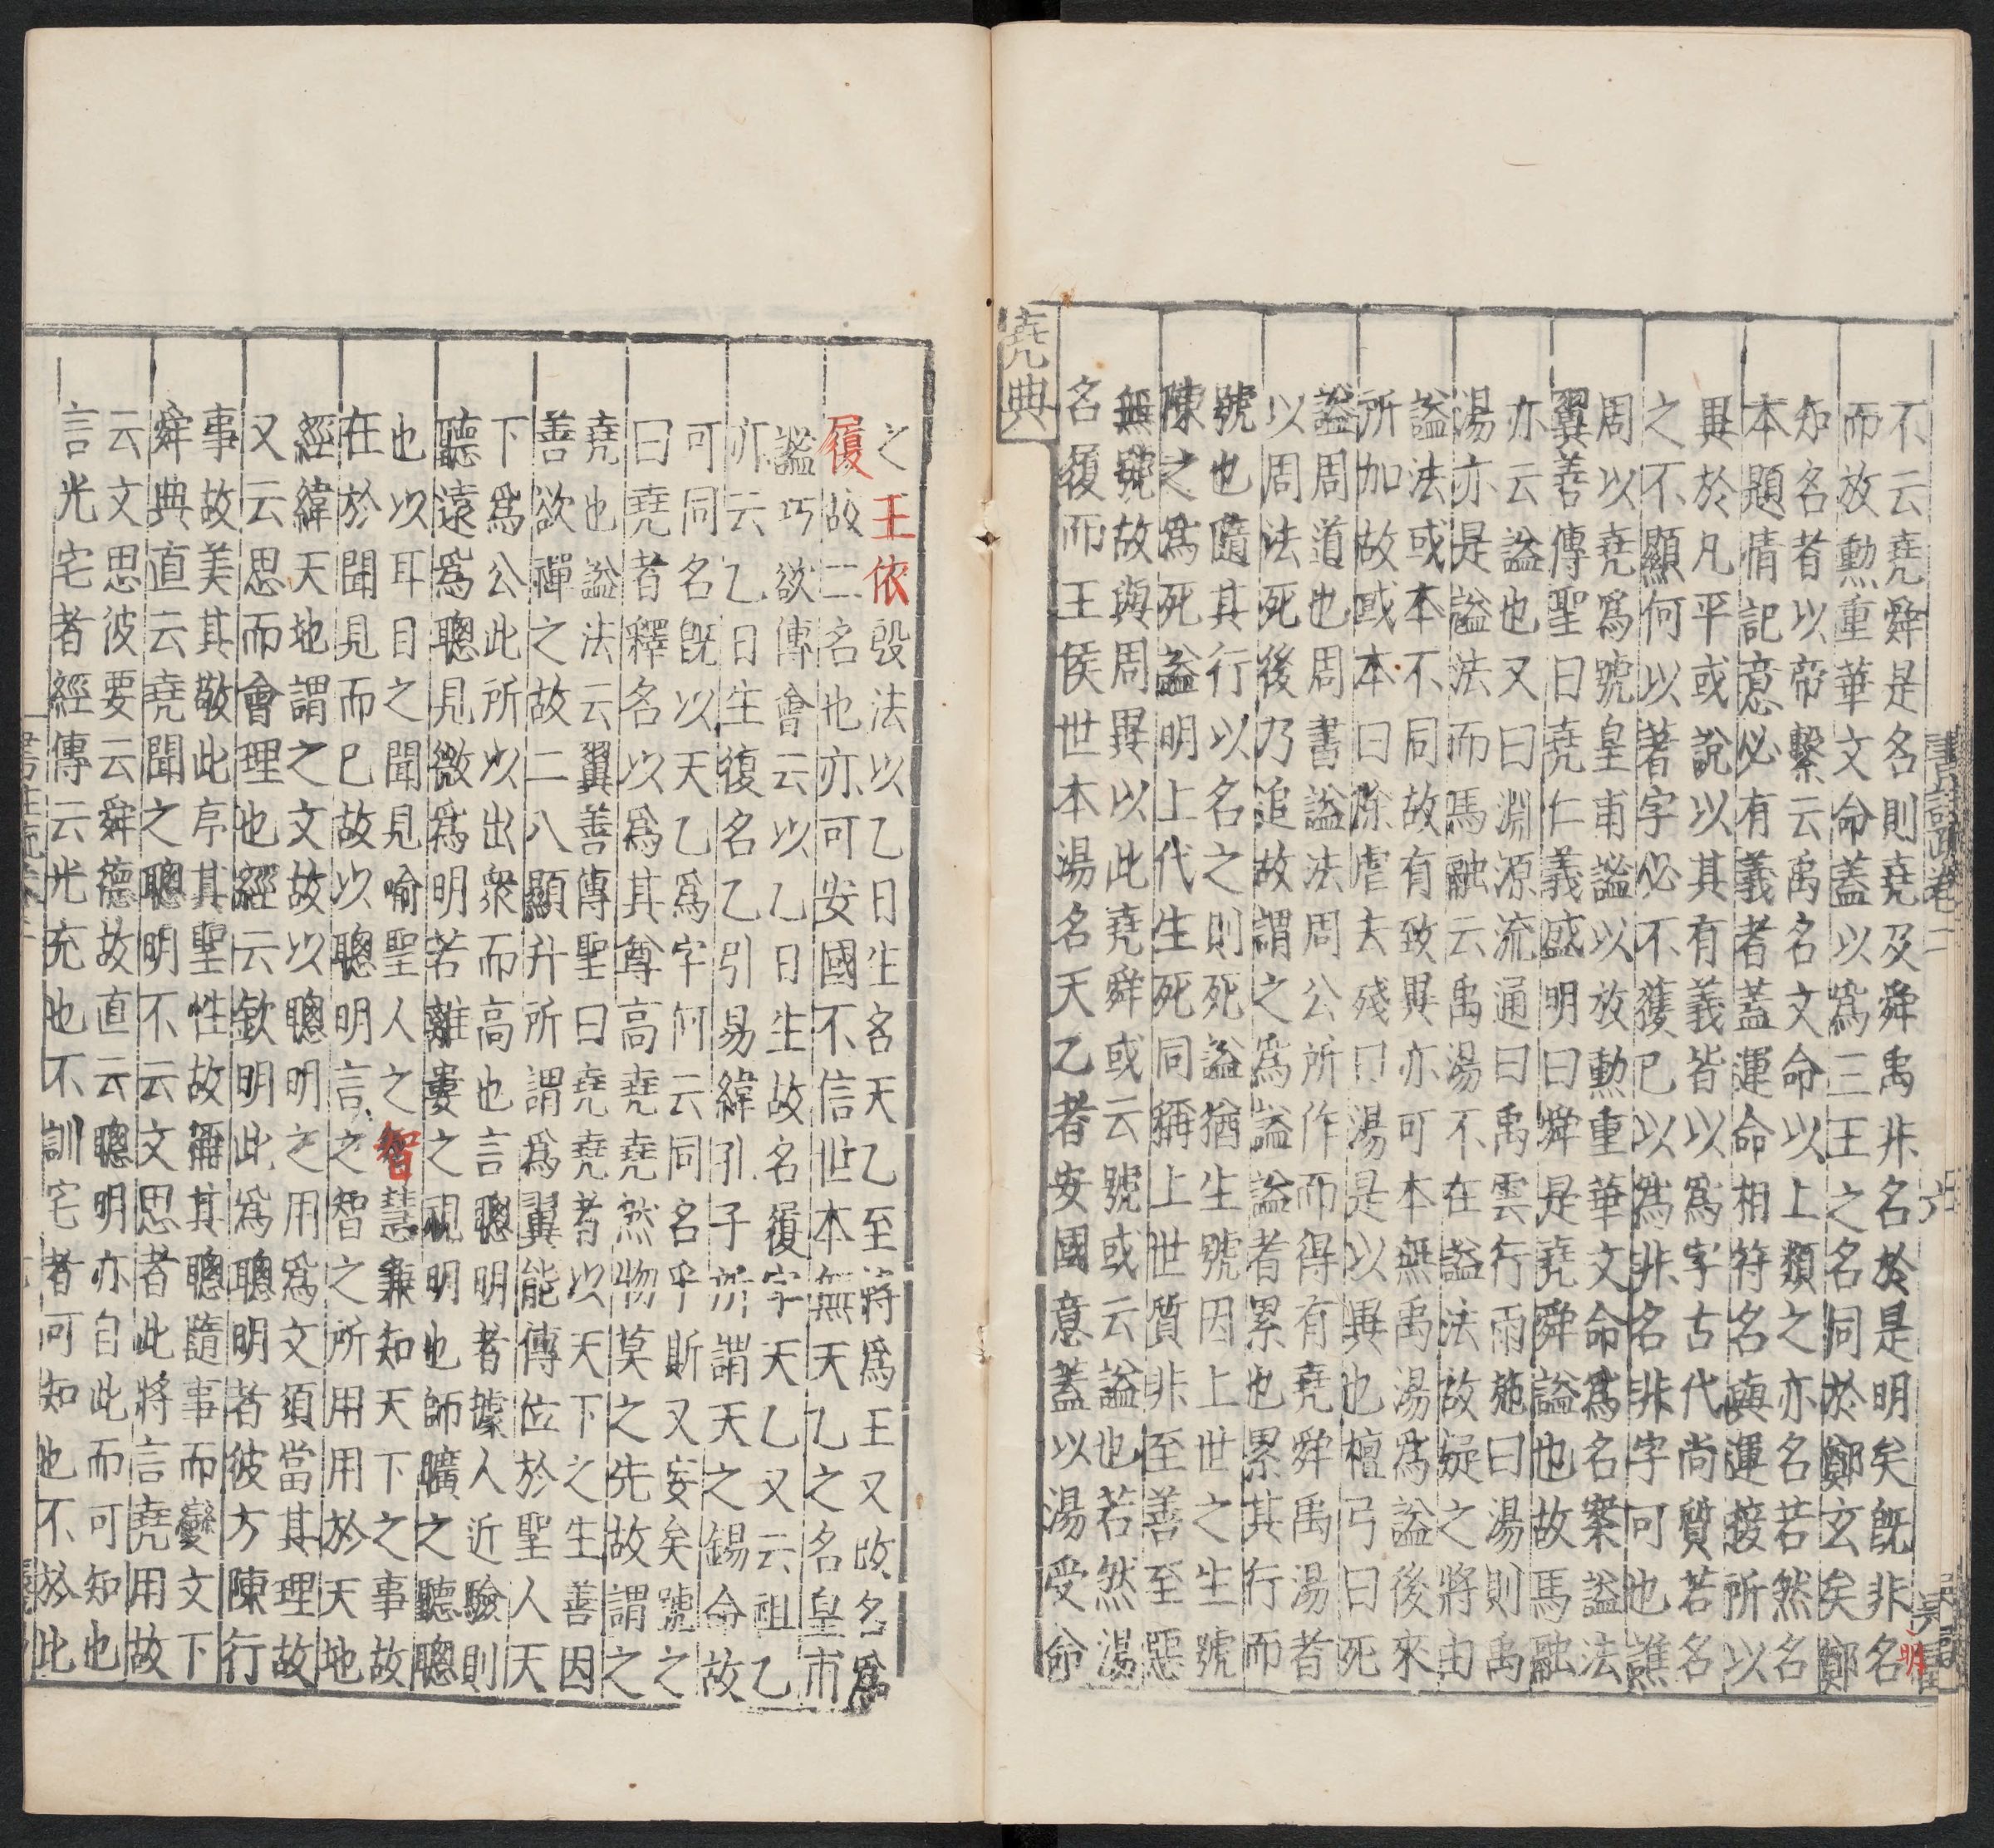 不云堯舜是名則堯及舜禹非名於是明矣既非名
而放勲重華文命蓋以爲三王之名同於鄭玄矣鄭
知名者以帝繫云禹名文命以上類之亦名若然名
本題情記意必有義者蓋運命相符名與運接所以
異於凡平或說以其有義皆以爲字古代尚質若名
之不顯何以著字必不獲已以爲非名非字可也譙
周以堯爲號皇甫謐以放勲重華文命爲名案謚法
翼善傳聖曰堯仁義盛明曰舜是堯舜謚也故馬融
亦云謚也又曰淵源流通曰禹雲行雨施曰湯則禹
湯亦是謚法而馬融云禹湯不在謚法故疑之將由
謚法或本不同故有致異亦可本無禹湯爲謚後來
所加故或本曰除虐去殘曰湯是以異也檀弓曰死
謚周道也周書謚法周公所作而得有堯舜禹湯者
以周法死後乃追故謂之爲謚謚者累也累其行而
號也隨其行以名之則死謚猶生號因上世之生號
陳之爲死謚明上代生死同稱上世質非至善至惡
無號故與周異以此堯舜或云號或云謚也若然湯
名履而王侯世本湯名天乙者安國意蓋以湯受命
堯典
之王依殷法以乙日生名天乙至將爲王又改名爲
履故二名也亦可安國不信世本無天乙之名皇甫
謐巧欲傳會云以乙日生故名履字天乙又云祖乙
亦云乙日生復名乙引易緯孔子所謂天之錫命故
可同名既以天乙爲字何云同名乎斯又妄矣號之
曰堯者釋名以爲其尊高堯堯然物莫之先故謂之
堯也謚法云翼善傳聖曰堯堯者以天下之生善因
善欲禪之故二八顯升所謂爲翼能傳位於聖人天
下爲公此所以出衆而高也言聰明者據人近驗則
聽遠爲聰見微爲明若離婁之視明也師曠之聽聰
也以耳目之聞見喻聖人之智慧兼知天下之事故
在於聞見而已故以聰明言之智之所用用於天地
經緯天地謂之文故以聰明之用爲文須當其理故
又云思而會理也經云欽明此爲聰明者彼方陳行
事故美其敬此序其聖性故稱其聰隨事而變文下
舜典直云堯聞之聰明不云文思者此將言堯用故
云文思彼要云舜德故直云聰明亦自此而可知也
言光宅者經傳云光充也不訓宅者可知也不於此